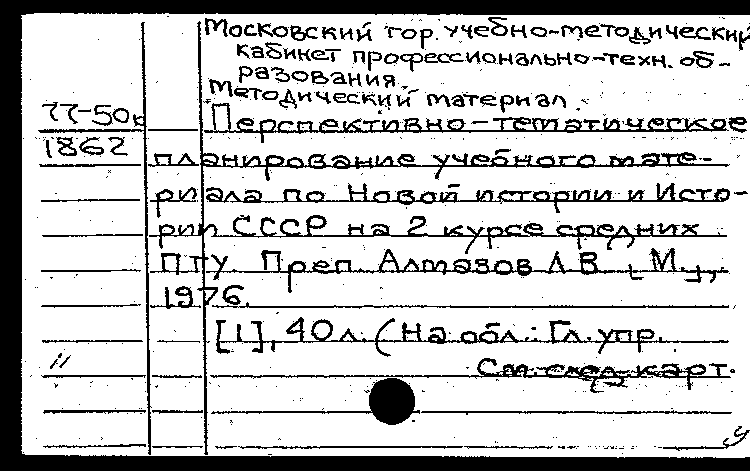 Московский гор. учебно-методический
кабинет профессионально-техн. об-
разования.
Методический материал.
77-50к
Перспективно-тематическое
1862
планирование учебного мате-
риала по Новой истории и Исто-
рии СССР на 2 курсе средних
ПТУ. Преп. Алмазов А.В. [М.],
1976.
[1], 40 л. (На обл.: Гл. упр.
См. след. карт.